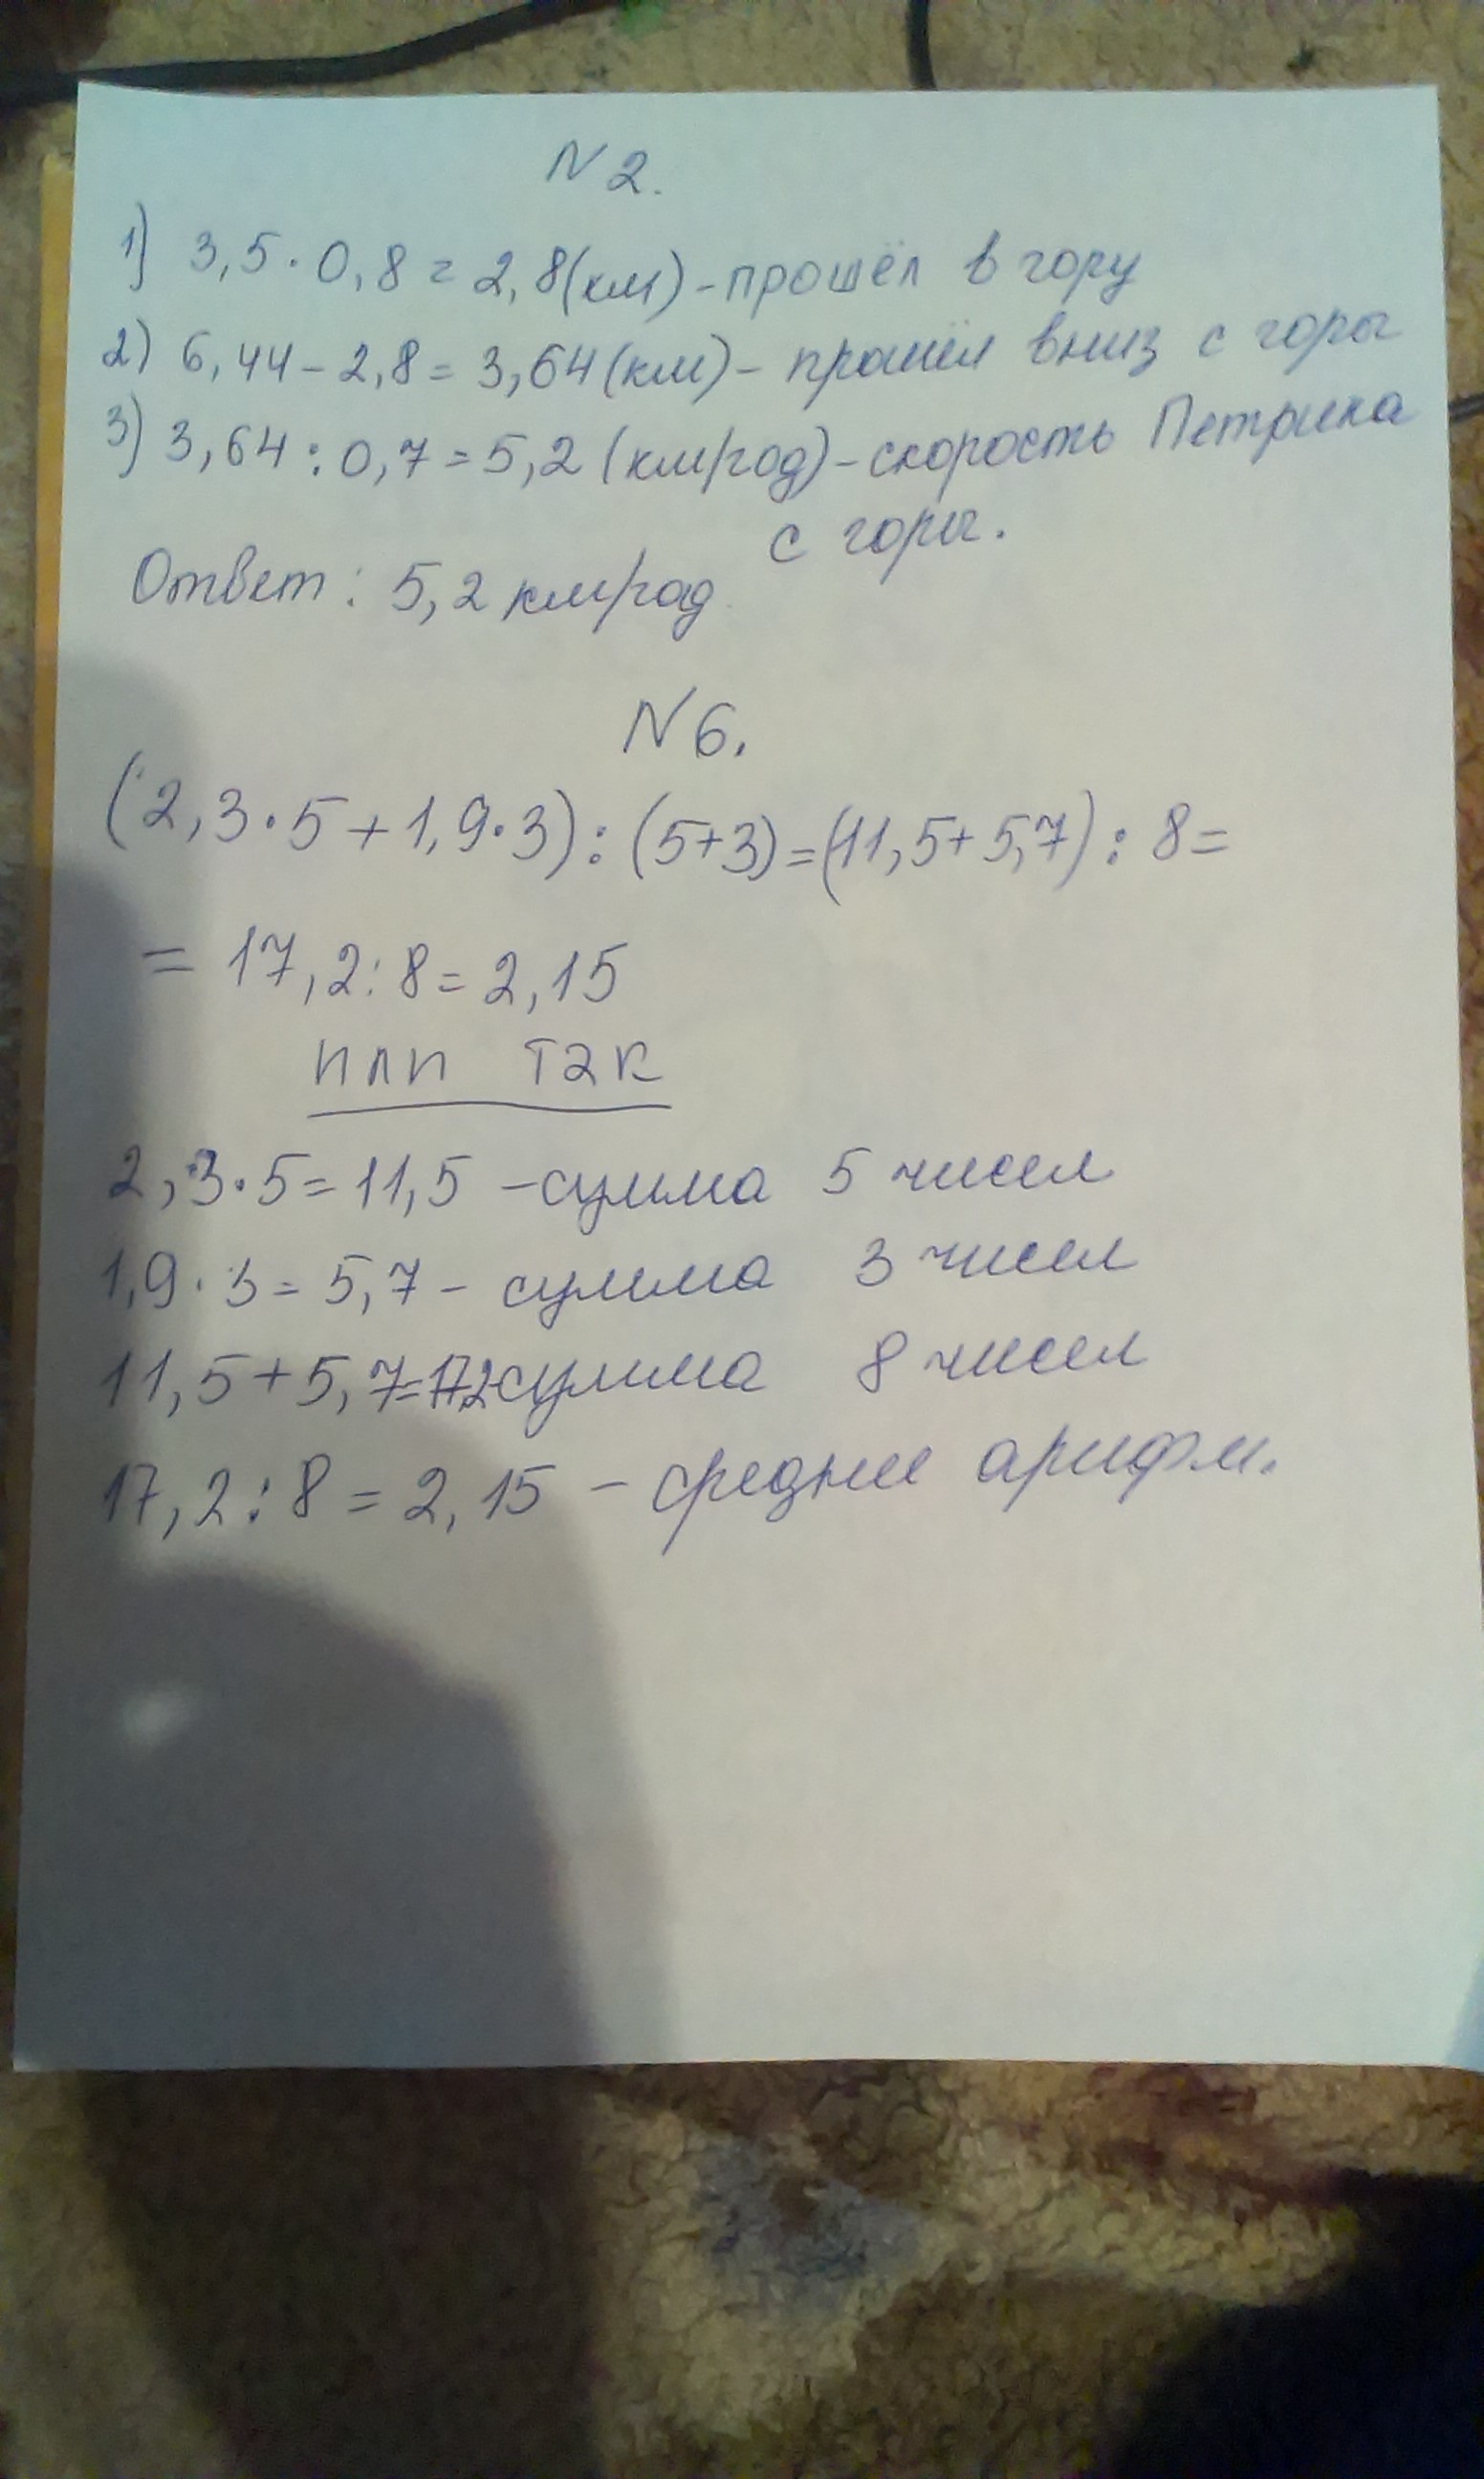 N 2.
1) 3,5 · 0,8 = 2,8(км) - прошёл в гору
2) 6,44 - 2,8 = 3,64(км) - прошёл вниз с горы
3) 3,64 : 0,7 = 5,2 (км/год) - скорость Петрика
с горы.
Ответ: 5,2 км/год
N 6.
(2,3 · 5 + 1,9 · 3) : (5+3) = (11,5 + 5,7) : 8 =
= 17,2 : 8 = 2,15
или так
2,3 · 5 = 11,5 - сумма 5 чисел
1,9 · 3 = 5,7 - сумма 3 чисел
11,5 + 5,7 = 17,2 - сумма 8 чисел
17,2 : 8 = 2,15 - среднее арифм.